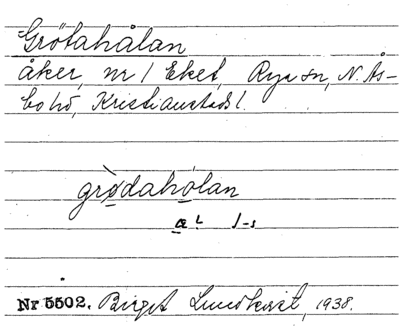 Grötahålan
åker, nr 1 Eket, Rya sn, N. Ås-
bo hd, Kristianstads l.
grødaholan
Nr 5502. Birgit Lundkvist, 1938.